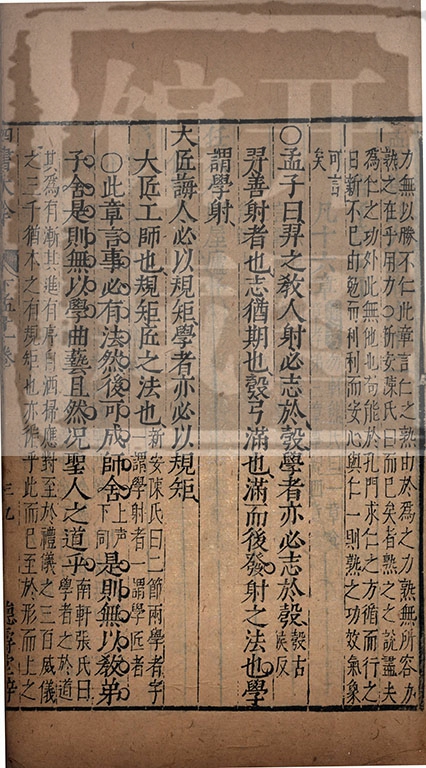 力無以勝不仁此章言仁之熟由於為之力熟無所容力
熟之在乎用力○新安葉氏曰而已矣者熟之之說盡夫
為仁之功外此無他也苟能於孔門求仁之方循而行之
日新不已由勉而利利而安心與仁一則熟之功效氣象
可言
矣
○孟子曰羿之教人射必志於彀學者亦必志於彀彀古候反
羿善射者也志猶期也彀弓滿也滿而後發射之法也學
謂學射
大匠誨人必以規矩學者亦必以規矩
大匠工師也規矩匠之法也新安陳氏曰二節兩學者字一謂學射者一謂學匠者
○此章言事必有法然後可成師舍上声下同是則無以教弟
子舍是則無以學曲藝且然況聖人之道乎南軒張氏曰學者之於道
其為有漸其進有序自洒掃應對至於禮儀之三百威儀
之三千猶木之有規矩也亦循乎此而已至於形而上之
四書大全
下孟十一卷
三九